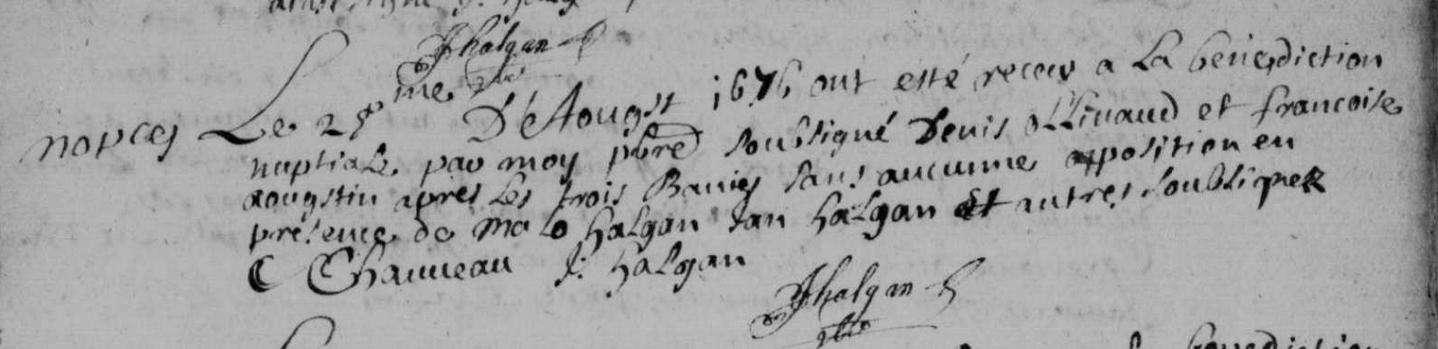 Jhalgan
nopces Le 25me D'Aougst 1676 ont esté receu a La benediction
nuptiale par moy pbre soubsigné Denis ollivaud et francoise
aougstin apres Les trois Banies sans aucunne opposition en
presence de malo halgan Jan halgan Et autres soubsignez
C Chauveau J: halgan
Jhalgan
pbre